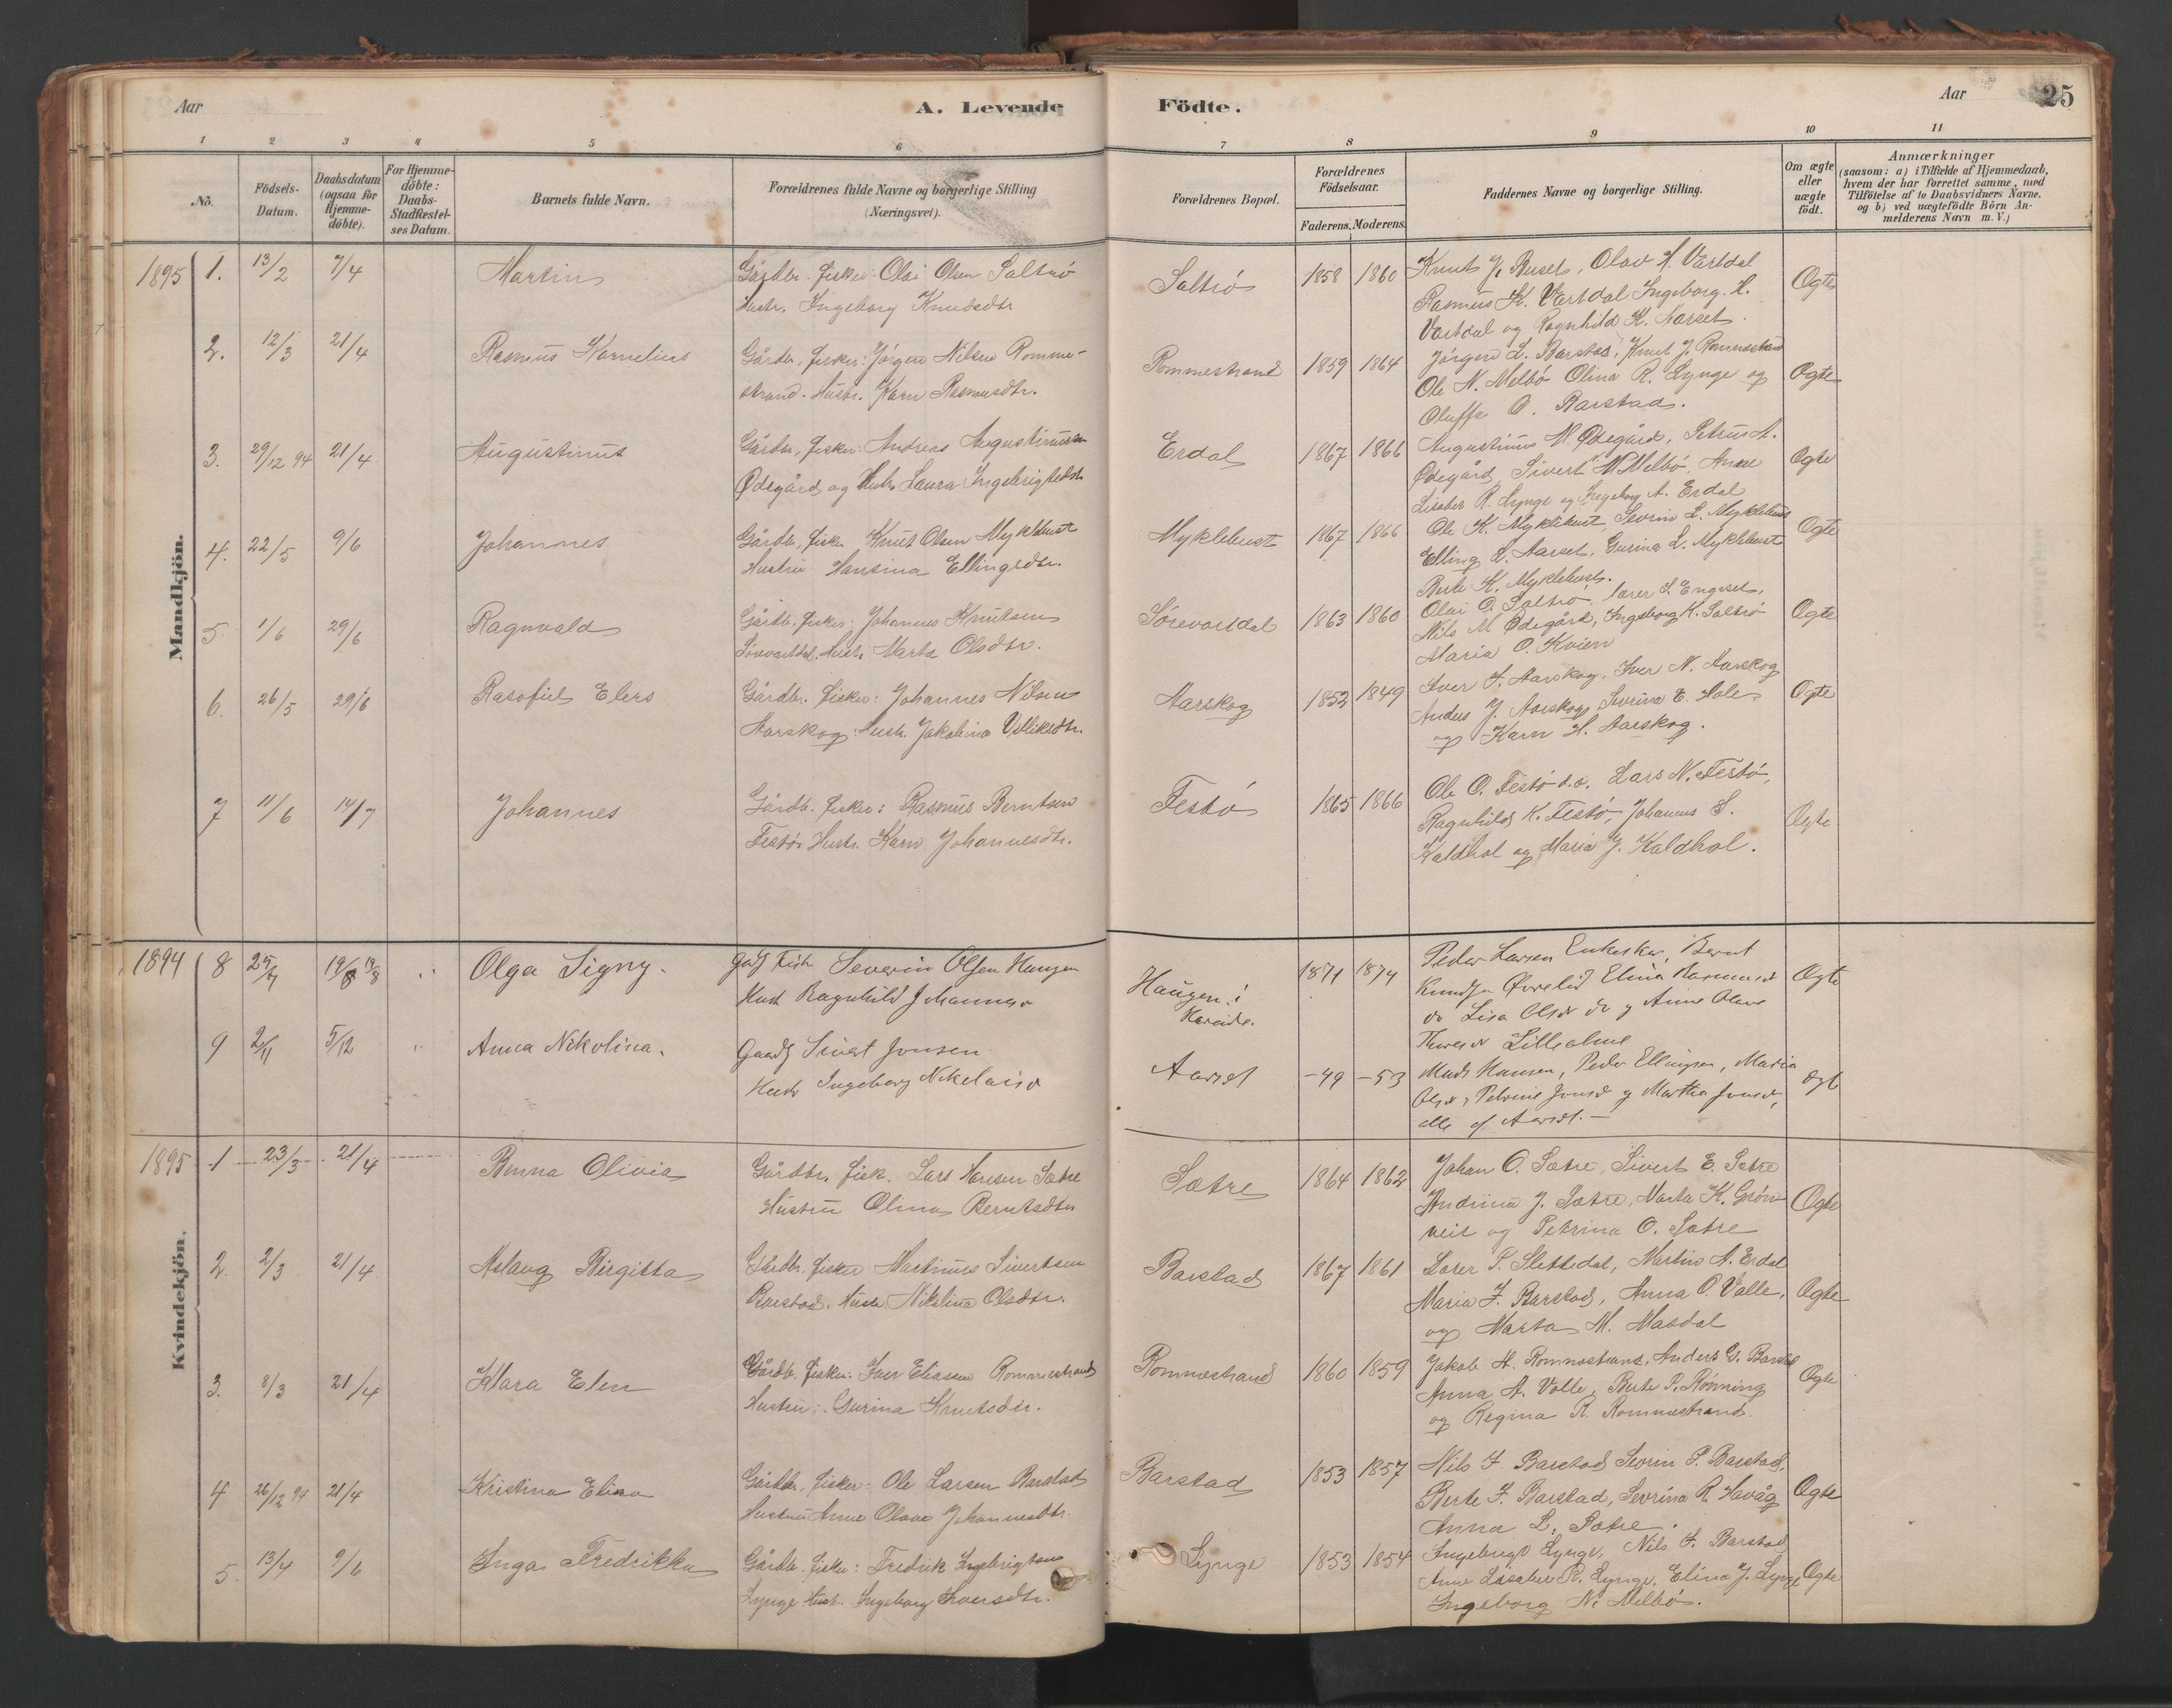 Aar
A. Levende
Födte.
Aar
25
1 2 3 4 5 6 7 8 9 10 11
No.
Födsels-
Datum.
Daabsdatum
(ogsaa for
Hjemme-
döbte).
For Hjemme-
döbte:
Daabs-
Stadfæstel-
ses Datum.
Barnets fulde Navn.
Forældrenes fulde Navne og borgerlige Stilling
(Næringsvei).
Forældrenes Bopæl.
Forældrenes
Födselsaar.
Faderens. Moderens.
Faddernes Navne og borgerlige Stilling.
Om ægte
eller
uægte
födt.
Anmærkninger
(saasom: a) i Tilfælde af Hjemmedaab,
hvem der har forrettet samme, med
Tilföielse af to Daabsvidners Navne.
og b) ved uægtefödte Börn An-
melderens Navn m. V.)
Mandkjön.
1895 1. 13/2 7/4 Martin
Gårdbr. fisker: Olai Olsen Saltrö
Hustr. Ingeborg Knudsdtr
Saltrö 1858 1860
Knut J. Buset, Olav H. Vartdal
Rasmus K. Vartdal Ingeborg H.
Vartdal og Ragnhild K. Aarset
Ogte
2. 12/3 21/4 Rasmus Kornelius
Gårdbr. fisker: Jörgen Nilsen Romme-
strand. Hustr. Karn Rasmusdtr.
Rommestrand 1859 1864
Jörgen L. Barstad, Knut J. Rommestrand
Ole N. Melbö Olina R. Lynge og
Oluffa O. Barstad.
Ogte
3. 29/12 94 21/4 Augustinus
Gårdbr. fisker: Andreas Augustinussen
Ødegård og Hustr. Laura Ingebrigtsdtr
Erdal 1867 1866
Augustinus M. Ødegård, Petrus A.
Ødegård, Sivert N. Melbö. Anne
Lisaber R. Lynge og Ingeborg A. Erdal
Ogte
4. 22/5 9/6 Johannes
Gårdbr. fisker Knut Olsen Myklebust
Hustru Hansina Ellingsdtr.
Myklebust 1867 1866
Ole K. Myklebust, Sevrin L. Myklebust
Elling L. Aarset. Gurina L. Myklebust
Berte K. Myklebust.
Ogte
5. 1/6 29/6 Ragnvald
Gårdb. fisker: Johannes Knutsen
Sörevartdal, Hustr. Marta Olsdtr.
Sörevartdal 1863 1860
Olai O. Saltrö, lærer S. Engeset,
Nils M Ødegård, Ingeborg K. Saltrö
Maria O. Kvien
Ogte
6. 26/5 29/6 Rasofiel Elers
Gårdbr. fisker: Johannes Nilsen
Aarskog: Hustr. Jakobina Villiksdtr.
Aarskog 1852 1849
Iver I. Aarskog, Iver N. Aarskog
Anders J. Aarskog, Sevrina E. Hole
og Karn H. Aarskog.
Ogte
7 11/6 14/7 Johannes
Gårdb. fisker: Rasmus Berntsen
Festö. Hustr. Karn Johannesdtr.
Festö 1865 1866
Ole O. Festö s.o. Lars N. Festö,
Ragnhild K. Festö, Johannes S.
Kaldhol og Maria J. Kaldhol.
Ogte
1894 8 25/7 19/8 19/8 Olga Signy.
Severin Olsen Haugen
Hust Ragnhild Johannesd
Haugen i
Hareide.
1871 1874
Peder Larsen, Bernt
Knudsen Øvrelid Elina Rasmusd
do Lisa Olsd do og Anne Olave
Lilleholme
Ogte
9 2/11 5/12 Anna Nikolina.
Gaardb Sivert Jonsen
Hustr Ingeborg Nikolaisd
Aarset -49 -53
Mads Hansen, Peder Ellingsen, Maria
Olsd, Petrine Jonsd og Martha Jonsd,
alle af Aarset.
Ogte
Kvindekjön.
1895 1 23/3 21/4 Benna Olivia
Gårdbr. fisk. Lars Hansen Sætre
Hustru Olina Berntsdtr
Sætre 1864 1862
Johan O. Sætre, Sivert E. Sætre
Andrina J. Sætre, Marta K. Grön
veit og Petrina O. Sætre
Ogte
2. 2/3 21/4 Aslaug Birgitta
Gårdbr. fisker Martinus Sivertsen
Barstad. Hustr. Nikolina Olsdtr.
Barstad 1867 1861
Lærer P. Slettedal, Martin A. Erdal
Maria I. Barstad, Anna O. Valle,
og Marta M. Masdal
Ogte
3. 8/3 21/4 Klara Elen
Gårdb. fisker: Iver Eliassen Rommestrand
Hustru: Gurina Knutsdtr.
Rommestrand 1860 1859
Jakob H. Rommestrand, Anders G. Barstad
Anna A. Valle, Berte P. Rönning
og Regina R. Rommestrand.
Ogte
4 26/12 94 21/4 Kristina Elina
Gårdbr. fisker: Ole Larsen Barstad
Hustru Anne Olave Johannesdtr.
Barstad 1853 1857
Nils F Barstad Sevrin P. Barstad,
Berte F. Barstad, Sevrina R. Havåg
Anna L. Sætre.
Ogte
5. 13/4 9/6 Inga Fredrikka
Gårdb. fisker: Fredrik Ingebrigtsen
Lynge Hustr. Ingeborg Iversdtr.
Lynge 1853 1854
Ingebrigt Lynge, Nils F. Barstad
Anne Lisaber R. Lynge, Elina J. Lynge
Ingeborg N. Melbö.
Ogte